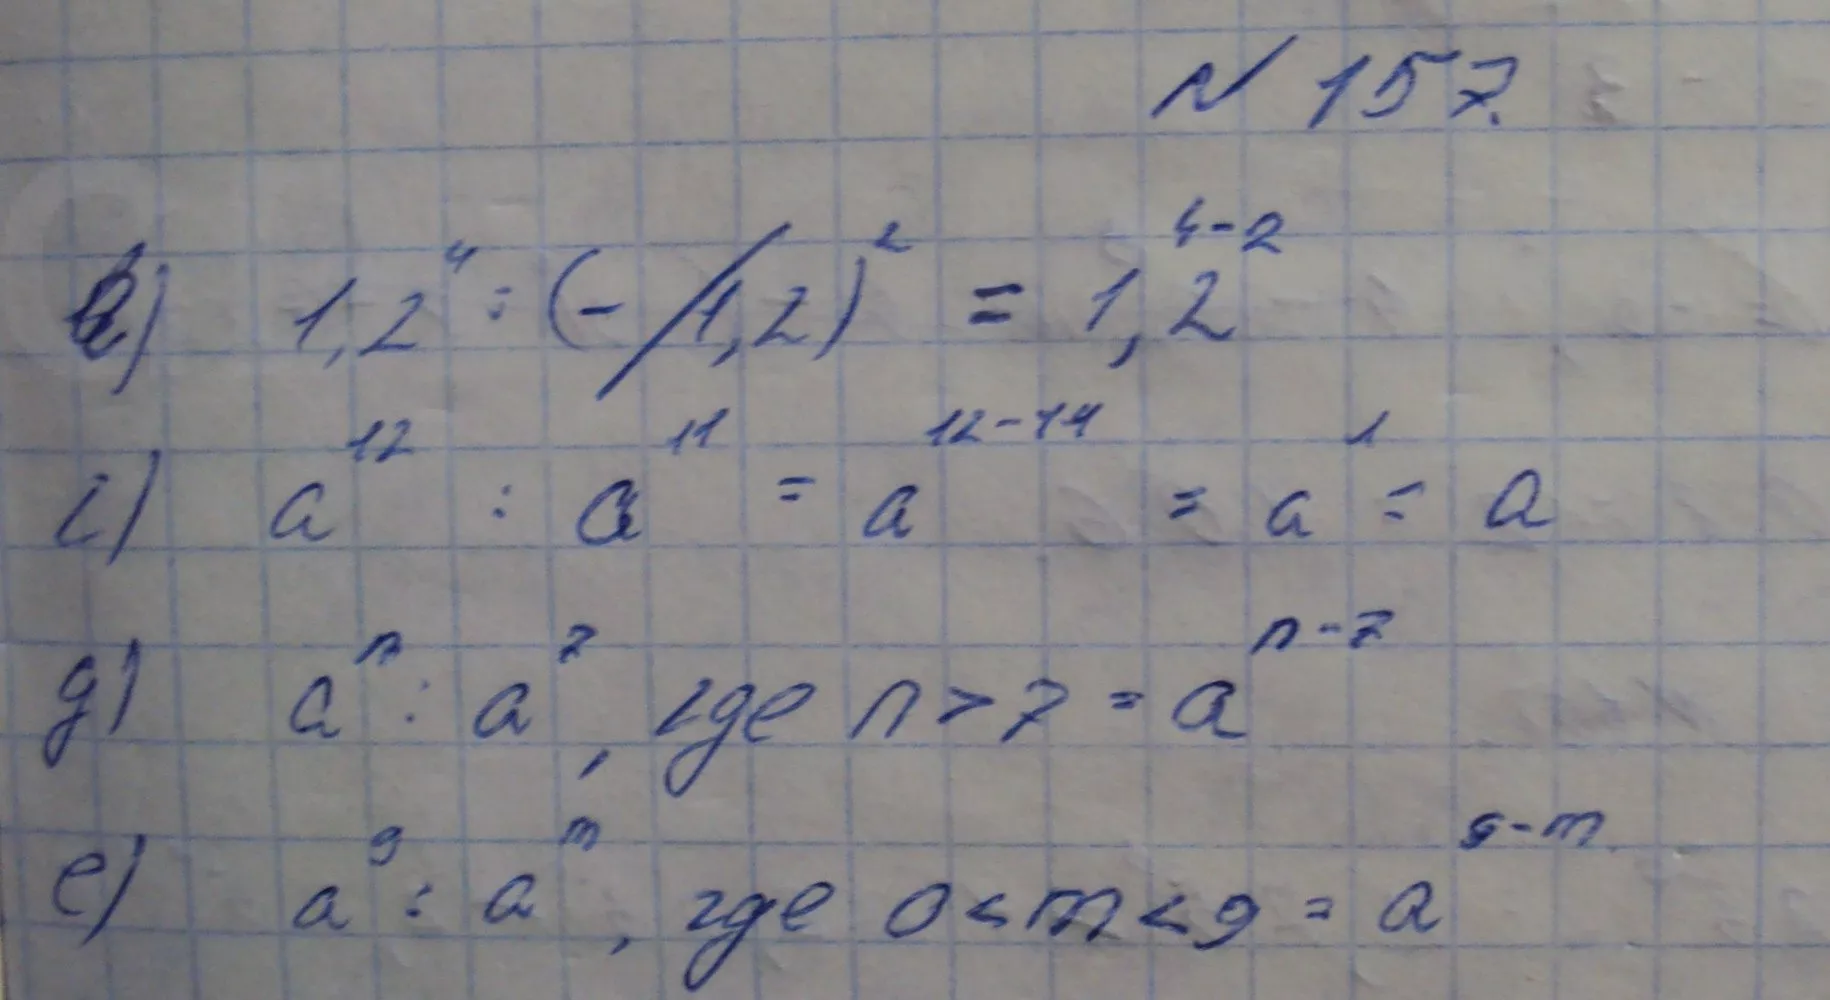 № 157.
в) 1,2⁴ : (-1,2)² = 1,2⁴⁻²
г) a¹² : a¹¹ = a¹²⁻¹¹ = a¹ = a
д) aⁿ : a⁷, где n > 7 = aⁿ⁻⁷
е) a⁹ : aᵐ, где 0 < m < 9 = a⁹⁻ᵐ